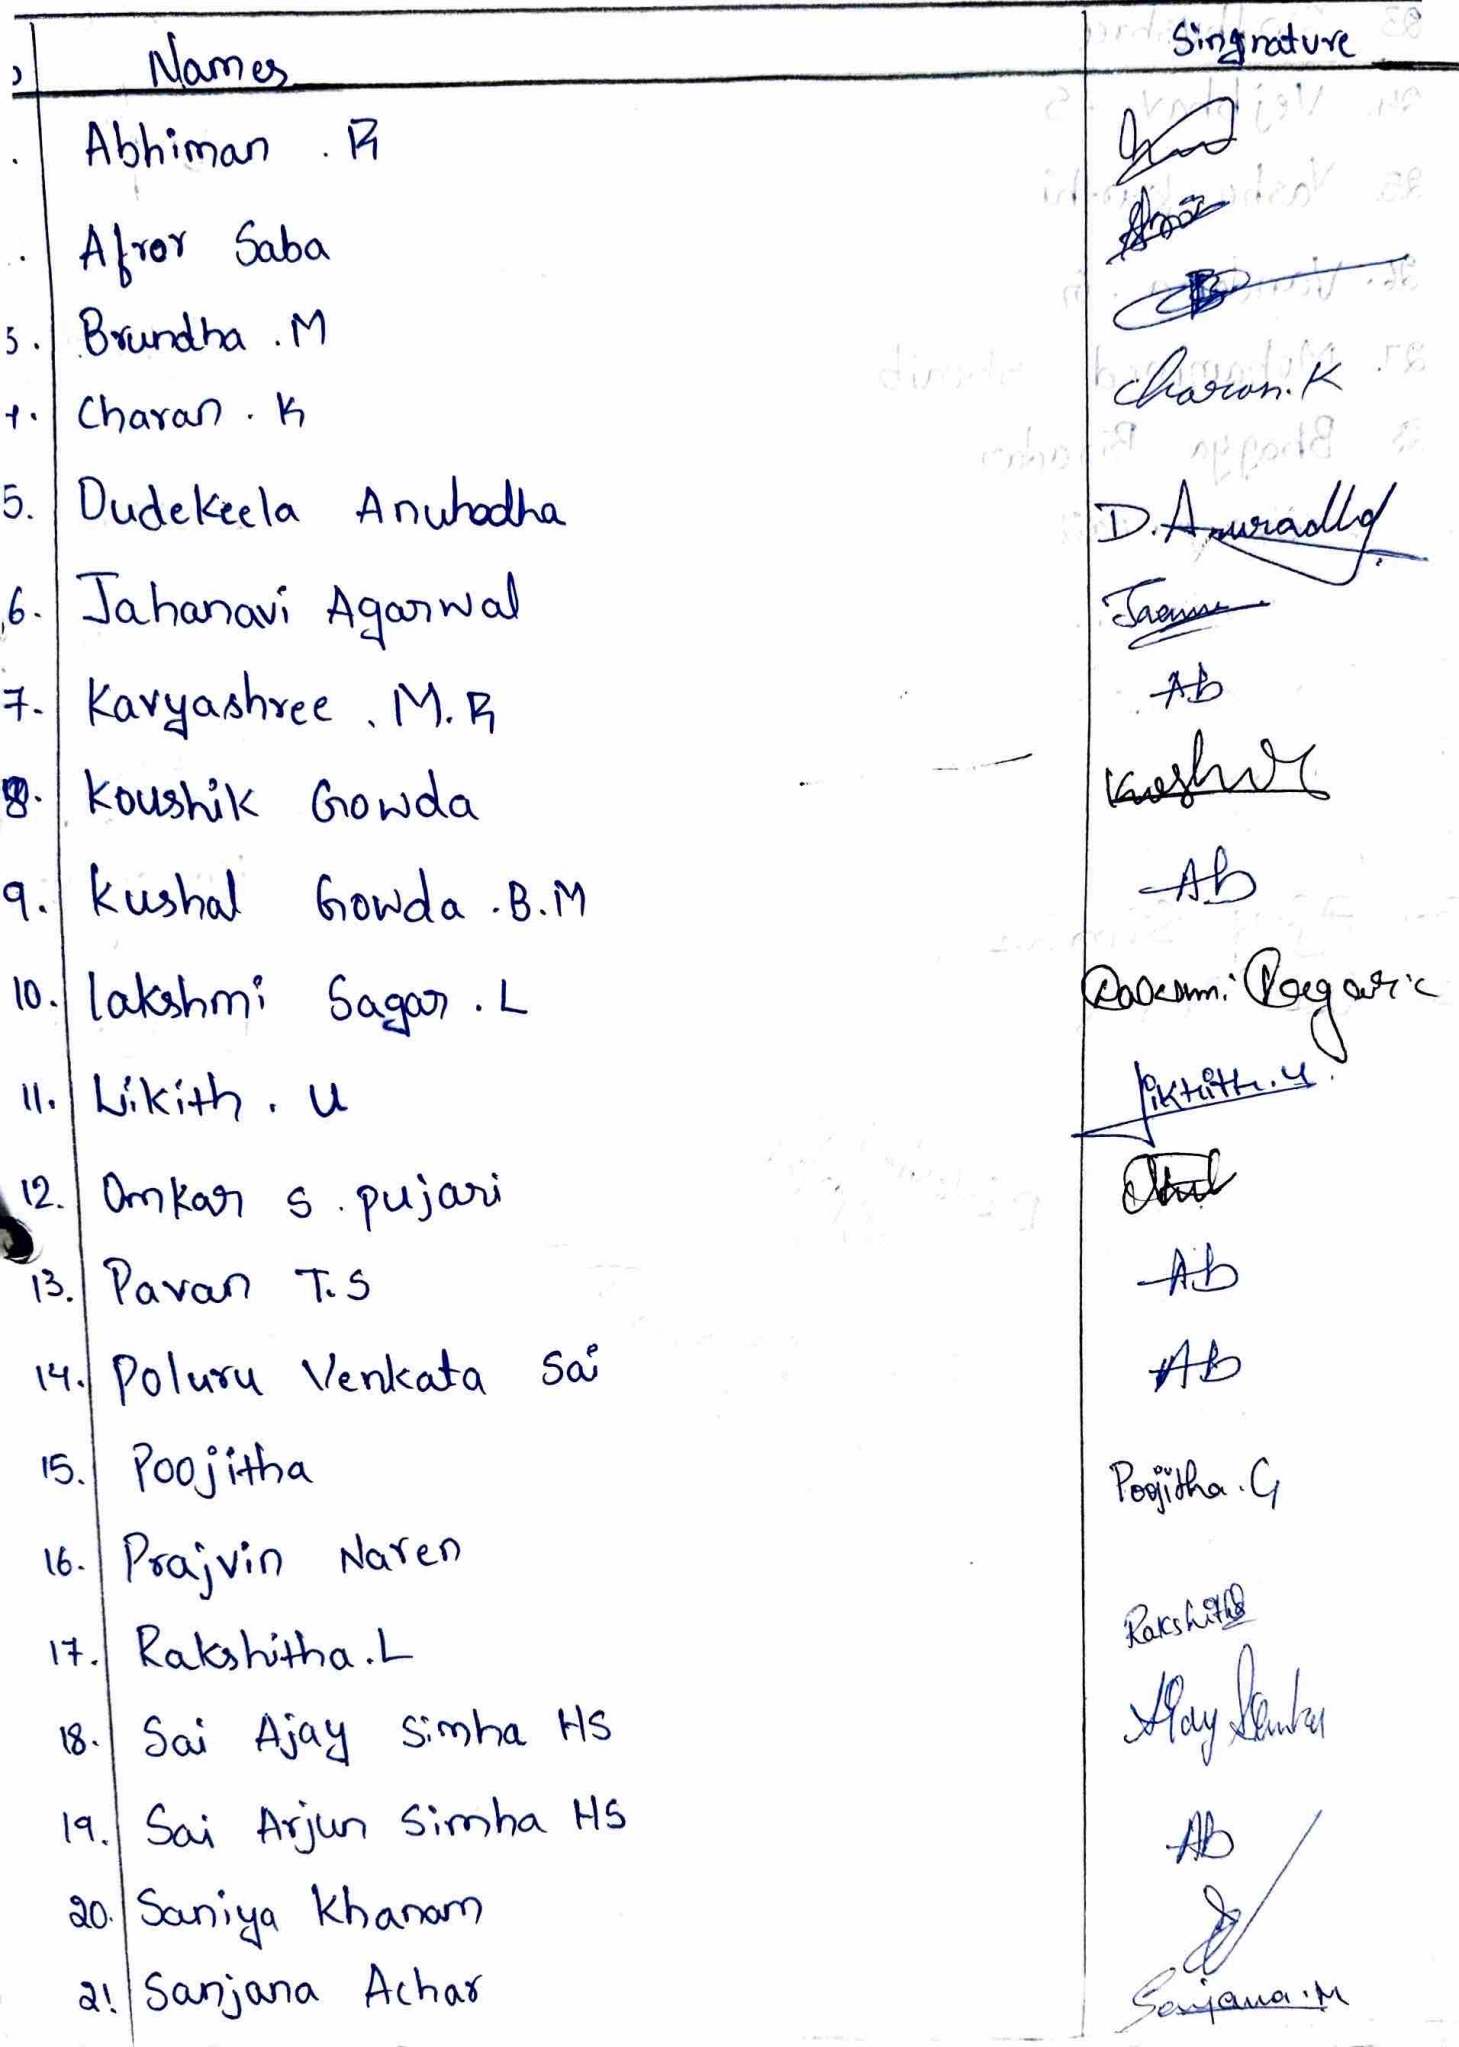 Names Singnature
Abhiman . R
Afror Saba
3. Brundha . M
4. Charan . K Charan. K
5. Dudekeela Anuhadha D. Anuradha
6. Jahanavi Agarwal
7. Kavyashree . M. R Ab
8. Koushik Gowda
9. Kushal Gowda . B. M Ab
10. Lakshmi Sagar . L
11. Likith . U likhith. U.
12. Omkar S . pujari
13. Pavan T. S Ab
14. Poluru Venkata Sai Ab
15. Poojitha Poojitha . G
16. Prajvin Naren
17. Rakshitha. L Rakshitha
18. Sai Ajay Simha HS
19. Sai Arjun Simha HS Ab
20. Saniya Khanam
21. Sanjana Achar Sanjana . M